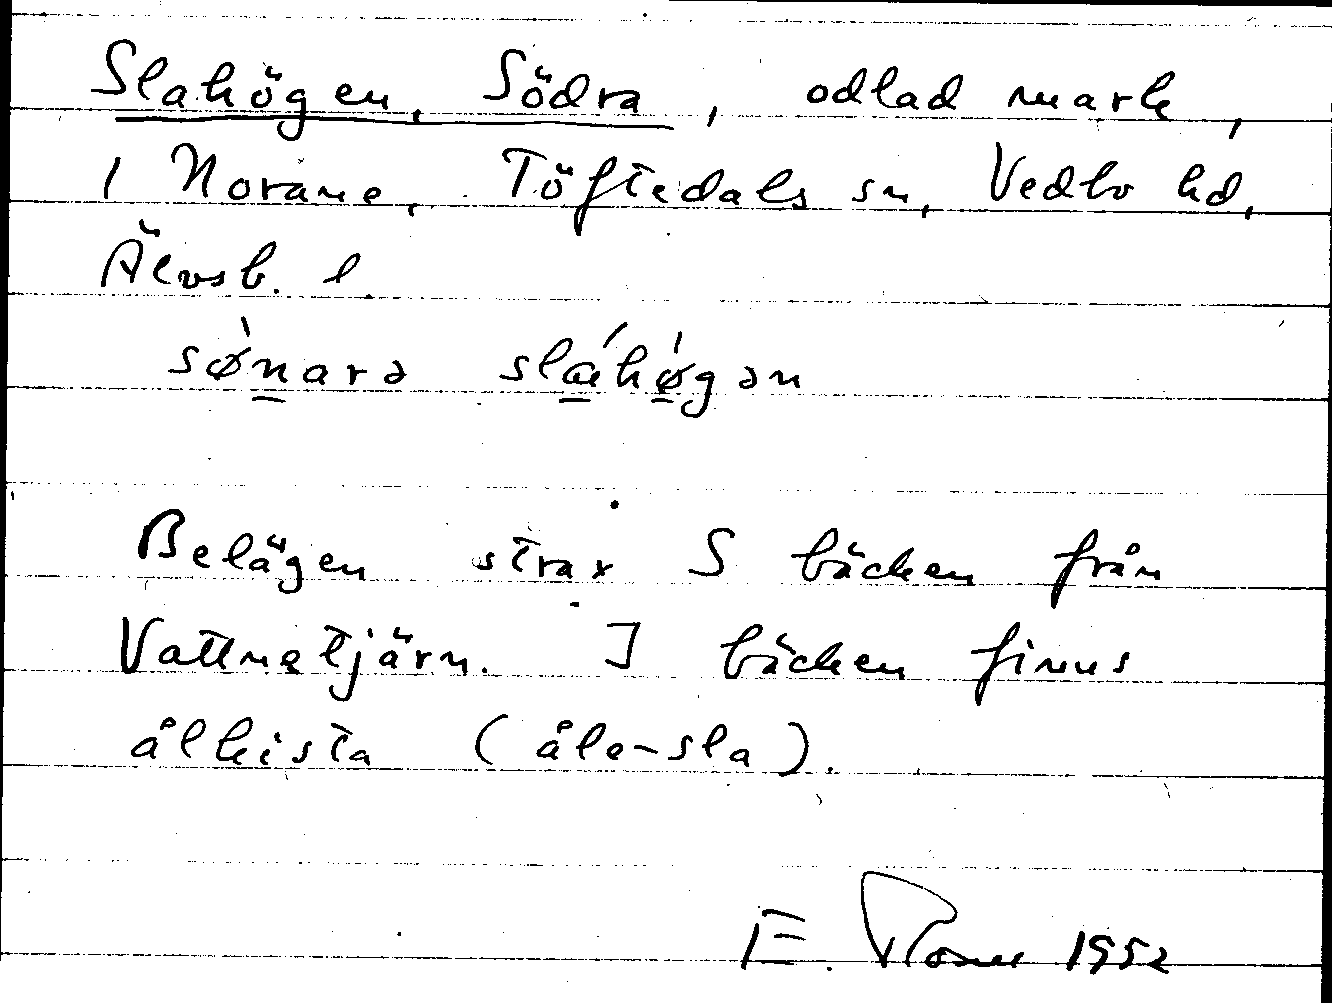 Slahögen, Södra, odlad mark,
i Norane, Töftedals sn, Vedbo hd,
Älvsb. l
sø̀narə sláhø̀gən
Belägen strax S bäcken från
Vattnetjärn. I bäcken finns
ålkista (åle-sla).
E. 1952